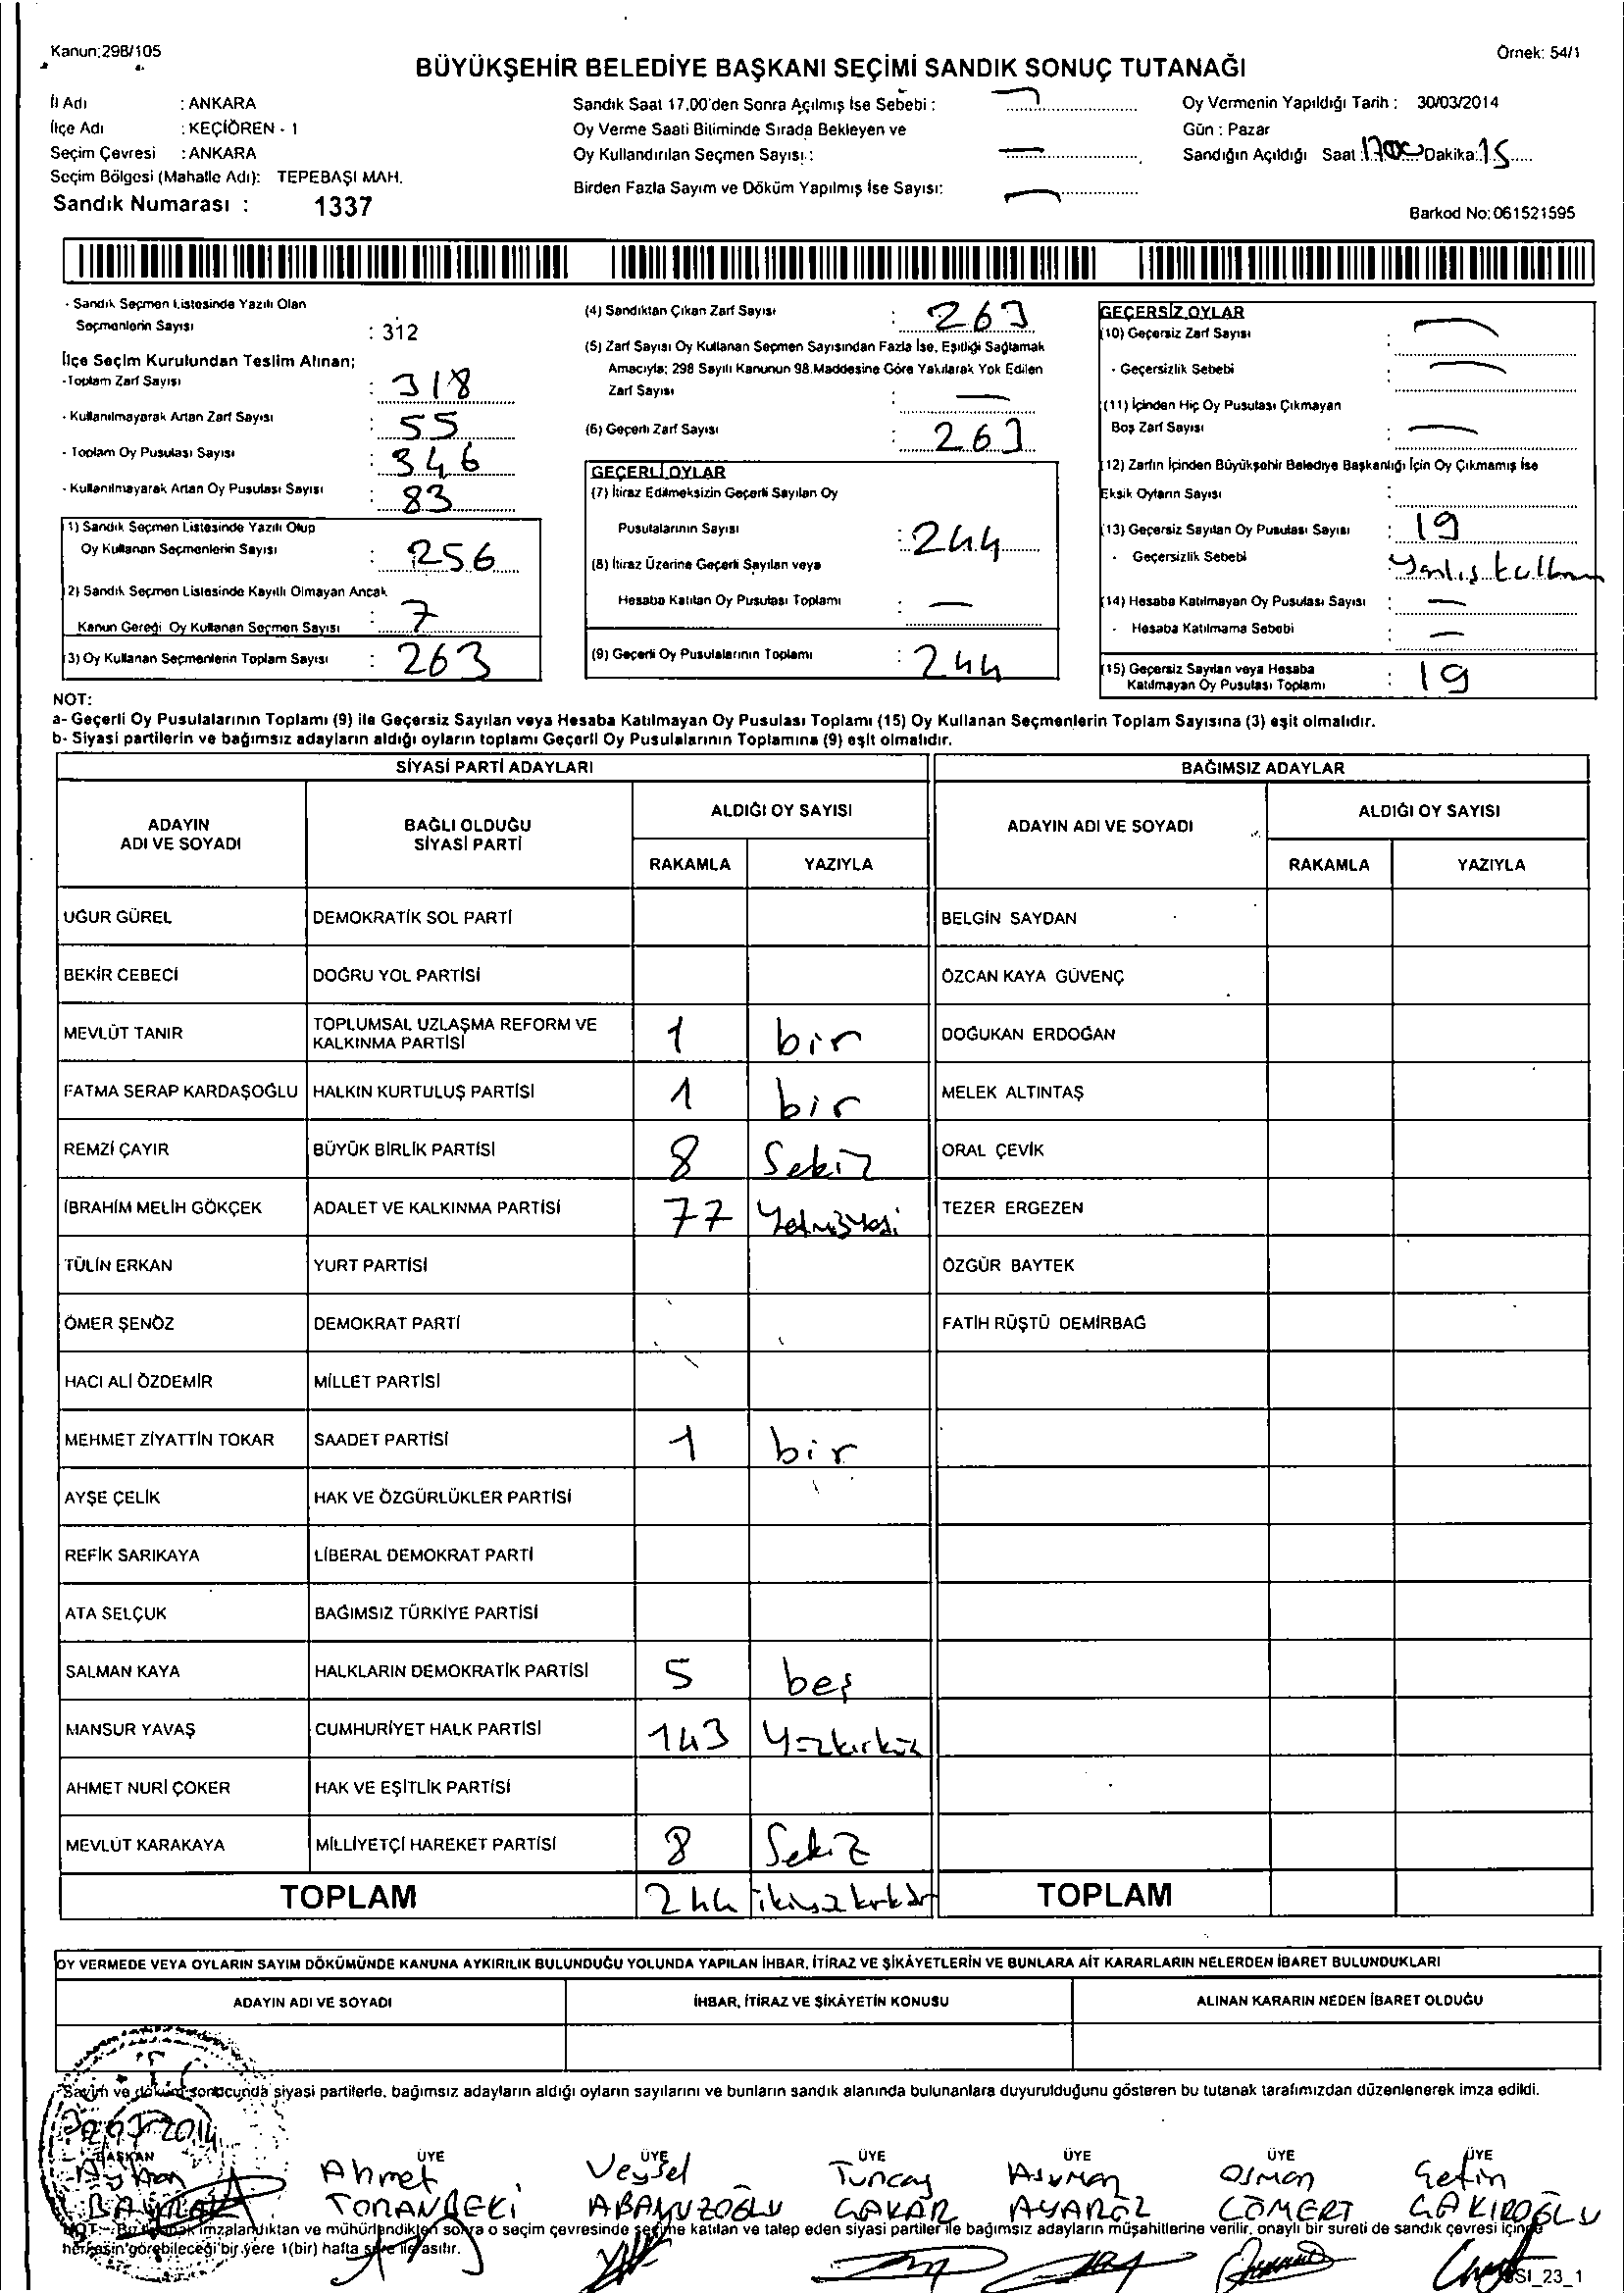 Kanun:298/105
Örnek: 54/1
BÜYÜKŞEHİR BELEDİYE BAŞKANI SEÇİMİ SANDIK SONUÇ TUTANAĞI
İl Adı : ANKARA
İlçe Adı : KEÇİÖREN - 1
Seçim Çevresi : ANKARA
Seçim Bölgesi (Mahalle Adı): TEPEBAŞI MAH.
Sandık Numarası : 1337
Sandık Saat 17.00'den Sonra Açılmış İse Sebebi :
Oy Verme Saati Bitiminde Sırada Bekleyen ve
Oy Kullandırılan Seçmen Sayısı :
Birden Fazla Sayım ve Döküm Yapılmış İse Sayısı:
Oy Vermenin Yapıldığı Tarih : 30/03/2014
Gün : Pazar
Sandığın Açıldığı Saat Dakika: 15
Barkod No: 061521595
- Sandık Seçmen Listesinde Yazılı Olan
Seçmenlerin Sayısı : 312
İlçe Seçim Kurulundan Teslim Alınan;
-Toplam Zarf Sayısı : 318
- Kullanılmayarak Artan Zarf Sayısı : 55
- Toplam Oy Pusulası Sayısı : 346
- Kullanılmayarak Artan Oy Pusulası Sayısı : 83
1) Sandık Seçmen Listesinde Yazılı Olup
Oy Kullanan Seçmenlerin Sayısı : 256
2) Sandık Seçmen Listesinde Kayıtlı Olmayan Ancak
Kanun Gereği Oy Kullanan Seçmen Sayısı : 7
(3) Oy Kullanan Seçmenlerin Toplam Sayısı : 263
(4) Sandıktan Çıkan Zarf Sayısı : 263
(5) Zarf Sayısı Oy Kullanan Seçmen Sayısından Fazla İse, Eşitliği Sağlamak
Amacıyla; 298 Sayılı Kanunun 98.Maddesine Göre Yakılarak Yok Edilen
Zarf Sayısı : —
(6) Geçerli Zarf Sayısı : 263
GEÇERLİ OYLAR
(7) İtiraz Edilmeksizin Geçerli Sayılan Oy
Pusulalarının Sayısı : 244
(8) İtiraz Üzerine Geçerli Sayılan veya
Hesaba Katılan Oy Pusulası Toplamı : —
(9) Geçerli Oy Pusulalarının Toplamı : 244
GEÇERSİZ OYLAR
(10) Geçersiz Zarf Sayısı : —
- Geçersizlik Sebebi : —
(11) İçinden Hiç Oy Pusulası Çıkmayan
Boş Zarf Sayısı : —
(12) Zarfın İçinden Büyükşehir Belediye Başkanlığı İçin Oy Çıkmamış İse
Eksik Oyların Sayısı :
(13) Geçersiz Sayılan Oy Pusulası Sayısı : 19
- Geçersizlik Sebebi : Yanlış
(14) Hesaba Katılmayan Oy Pusulası Sayısı : —
- Hesaba Katılmama Sebebi : —
(15) Geçersiz Sayılan veya Hesaba
Katılmayan Oy Pusulası Toplamı : 19
NOT:
a- Geçerli Oy Pusulalarının Toplamı (9) ile Geçersiz Sayılan veya Hesaba Katılmayan Oy Pusulası Toplamı (15) Oy Kullanan Seçmenlerin Toplam Sayısına (3) eşit olmalıdır.
b- Siyasi partilerin ve bağımsız adayların aldığı oyların toplamı Geçerli Oy Pusulalarının Toplamına (9) eşit olmalıdır.
SİYASİ PARTİ ADAYLARI
BAĞIMSIZ ADAYLAR
ADAYIN ADI VE SOYADI
BAĞLI OLDUĞU SİYASİ PARTİ
ALDIĞI OY SAYISI
RAKAMLA YAZIYLA
ADAYIN ADI VE SOYADI
ALDIĞI OY SAYISI
RAKAMLA YAZIYLA
UĞUR GÜREL DEMOKRATİK SOL PARTİ BELGİN SAYDAN
BEKİR CEBECİ DOĞRU YOL PARTİSİ ÖZCAN KAYA GÜVENÇ
MEVLÜT TANIR TOPLUMSAL UZLAŞMA REFORM VE KALKINMA PARTİSİ 1 bir DOĞUKAN ERDOĞAN
FATMA SERAP KARDAŞOĞLU HALKIN KURTULUŞ PARTİSİ 1 bir MELEK ALTINTAŞ
REMZİ ÇAYIR BÜYÜK BİRLİK PARTİSİ 8 Sekiz ORAL ÇEVİK
İBRAHİM MELİH GÖKÇEK ADALET VE KALKINMA PARTİSİ 77 Yetmişyedi TEZER ERGEZEN
TÜLİN ERKAN YURT PARTİSİ ÖZGÜR BAYTEK
ÖMER ŞENÖZ DEMOKRAT PARTİ FATİH RÜŞTÜ DEMİRBAĞ
HACI ALİ ÖZDEMİR MİLLET PARTİSİ
MEHMET ZİYATTİN TOKAR SAADET PARTİSİ 1 bir
AYŞE ÇELİK HAK VE ÖZGÜRLÜKLER PARTİSİ
REFİK SARIKAYA LİBERAL DEMOKRAT PARTİ
ATA SELÇUK BAĞIMSIZ TÜRKİYE PARTİSİ
SALMAN KAYA HALKLARIN DEMOKRATİK PARTİSİ 5 beş
MANSUR YAVAŞ CUMHURİYET HALK PARTİSİ 143 Yüzkırküç
AHMET NURİ ÇOKER HAK VE EŞİTLİK PARTİSİ
MEVLÜT KARAKAYA MİLLİYETÇİ HAREKET PARTİSİ 8 Sekiz
TOPLAM 244 ikiyüzkırkdör TOPLAM
OY VERMEDE VEYA OYLARIN SAYIM DÖKÜMÜNDE KANUNA AYKIRILIK BULUNDUĞU YOLUNDA YAPILAN İHBAR, İTİRAZ VE ŞİKÂYETLERİN VE BUNLARA AİT KARARLARIN NELERDEN İBARET BULUNDUKLARI
ADAYIN ADI VE SOYADI İHBAR, İTİRAZ VE ŞİKÂYETİN KONUSU ALINAN KARARIN NEDEN İBARET OLDUĞU
Sayım ve döküm sonucunda siyasi partilerle, bağımsız adayların aldığı oyların sayılarını ve bunların sandık alanında bulunanlara duyurulduğunu gösteren bu tutanak tarafımızdan düzenlenerek imza edildi.
BAŞKAN ÜYE ÜYE ÜYE ÜYE ÜYE ÜYE
Ayhan Ahmet Veysel Tuncay Osman Çetin
TORANBEKİ ABANUZOĞLU ÇAKAR AYARÖZ CÖMERT ÇAKIROĞLU
NOT:- Bu tutanak imzalandıktan ve mühürlendikten sonra o seçim çevresinde seçime katılan ve talep eden siyasi partiler ile bağımsız adayların müşahitlerine verilir, onaylı bir sureti de sandık çevresi içinde
herkesin görebileceği bir yere 1(bir) hafta süre ile asılır.
SSI_23_1